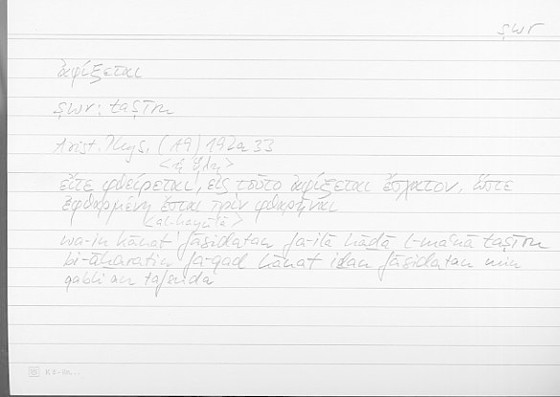 ṣwr
ἀφίξεται
ṣwr: taṣīru
Arist. Phys. (A9) 192a33
<ἡ ὕλη>
εἴτε φθείρεται, εἰς τοῦτο ἀφίξεται ἔσχατον, ὥστε
ἐφθαρμένη ἔσται πρὶν φθαρῆναι
<al-hayūlā>
wa-in kānat fāsidatan fa-ilā hāḏā l-maʿnā taṣīru
bi-āḫaratin fa-qad kānat iḏan fāsidatan min
qabli an tafsuda